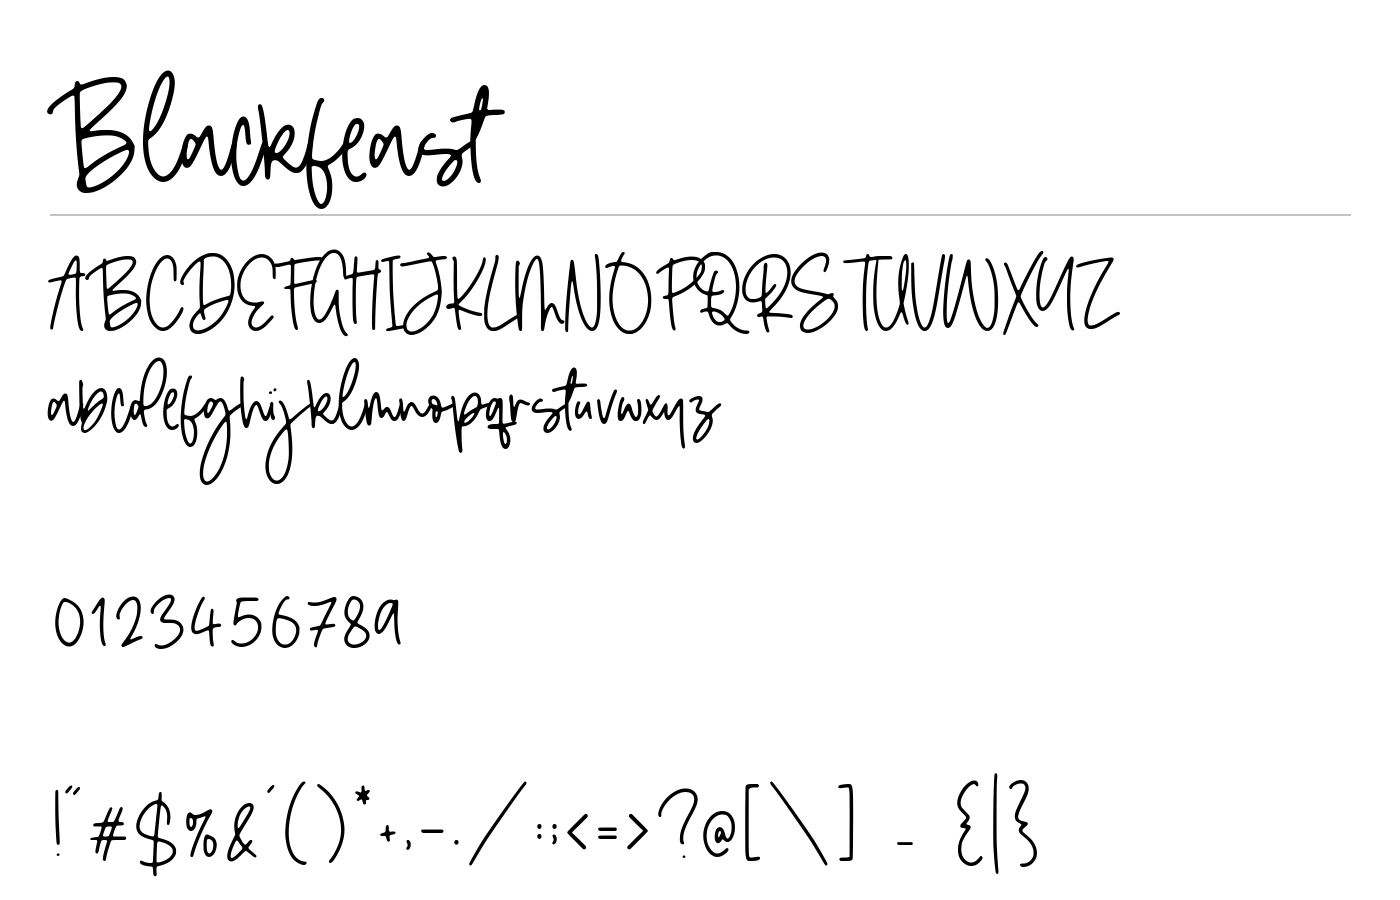 Blackfeast
ABCDEFGHIJKLMNOPQRSTUVWXYZ
abcdefghijklmnopqrstuvwxyz
0123456789
!"#$%&'()*+,-./:;<=>?@[\]_{|}